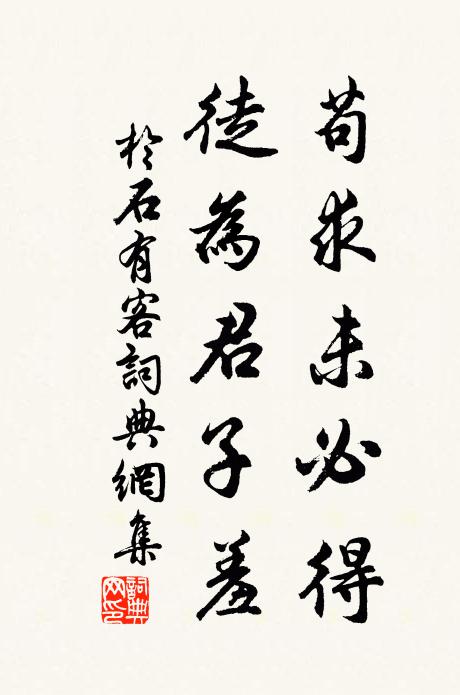 苟求未必得
徒為君子羞
於石有客詞典網集
詞典
网印